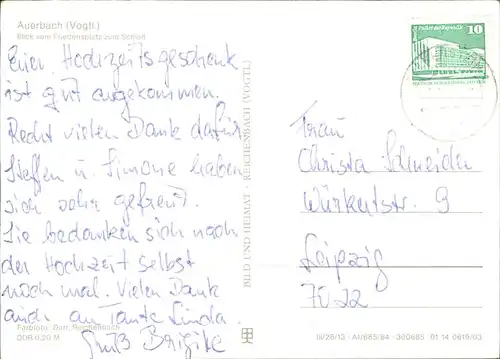 Auerbach (Vogtl.)
Blick vom Friedensplatz zum Schloß
Euer Hochzeitsgeschenk
ist gut angekommen.
Recht vielen Dank dafür
Steffen u. Simone haben
sich sehr gefreut.
Sie bedanken sich nach
der Hochzeit selbst
noch mal. Vielen Dank
auch an Tante Linda.
Gruß Brigitte
Farbfoto: Darr, Reichenbach
DDR 0,20 M
BILD UND HEIMAT · REICHENBACH (VOGTL)
10
Palast der Republik
Frau
Christa Schneider
9
Leipzig
7022
III/26/13 · A1/665/84 · 300685 01 14 0619/03